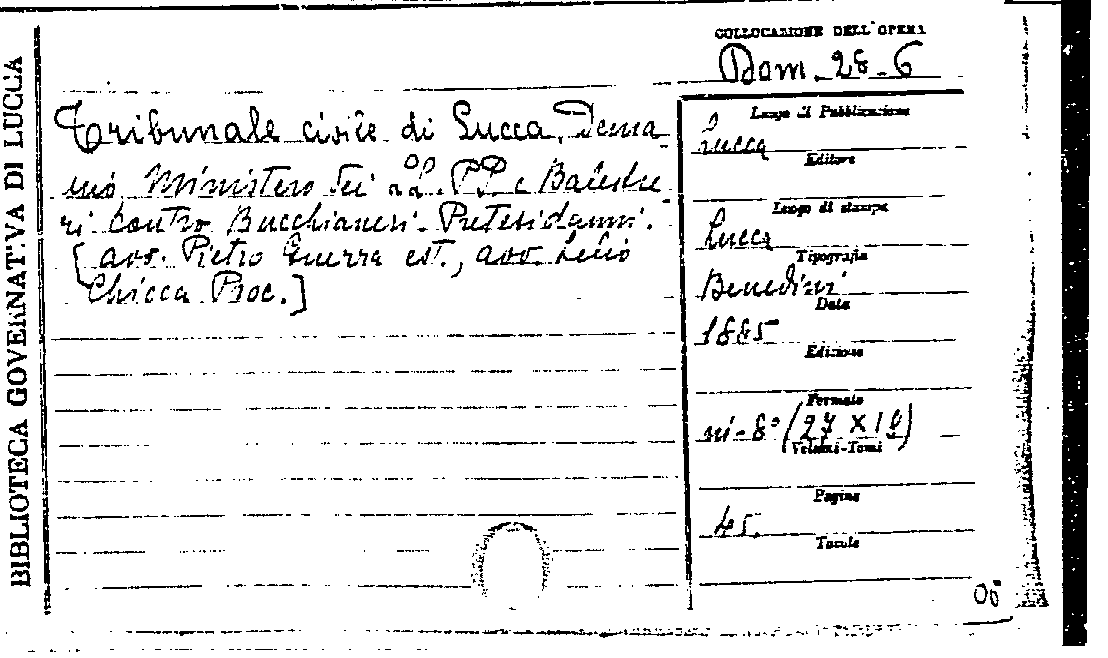 BIBLIOTECA GOVERNATIVA DI LUCCA
COLLOCAZIONE DELL'OPERA
Dom. 28-6
Tribunale civile di Lucca. Dema
nio Ministero dei LL. PP e Balestre
ri contro Bucchianeri. Pretesi danni.
[avv. Pietro Guerra est., avv. Lelio
Chicca Proc.]
Luogo di Pubblicazione
Lucca
Editore
Luogo di stampa
Lucca
Tipografia
Benedini
Data
1885
Edizione
Formato
in-8° (27 X
Volumi-Tomi
Pagine
45.
Tavole